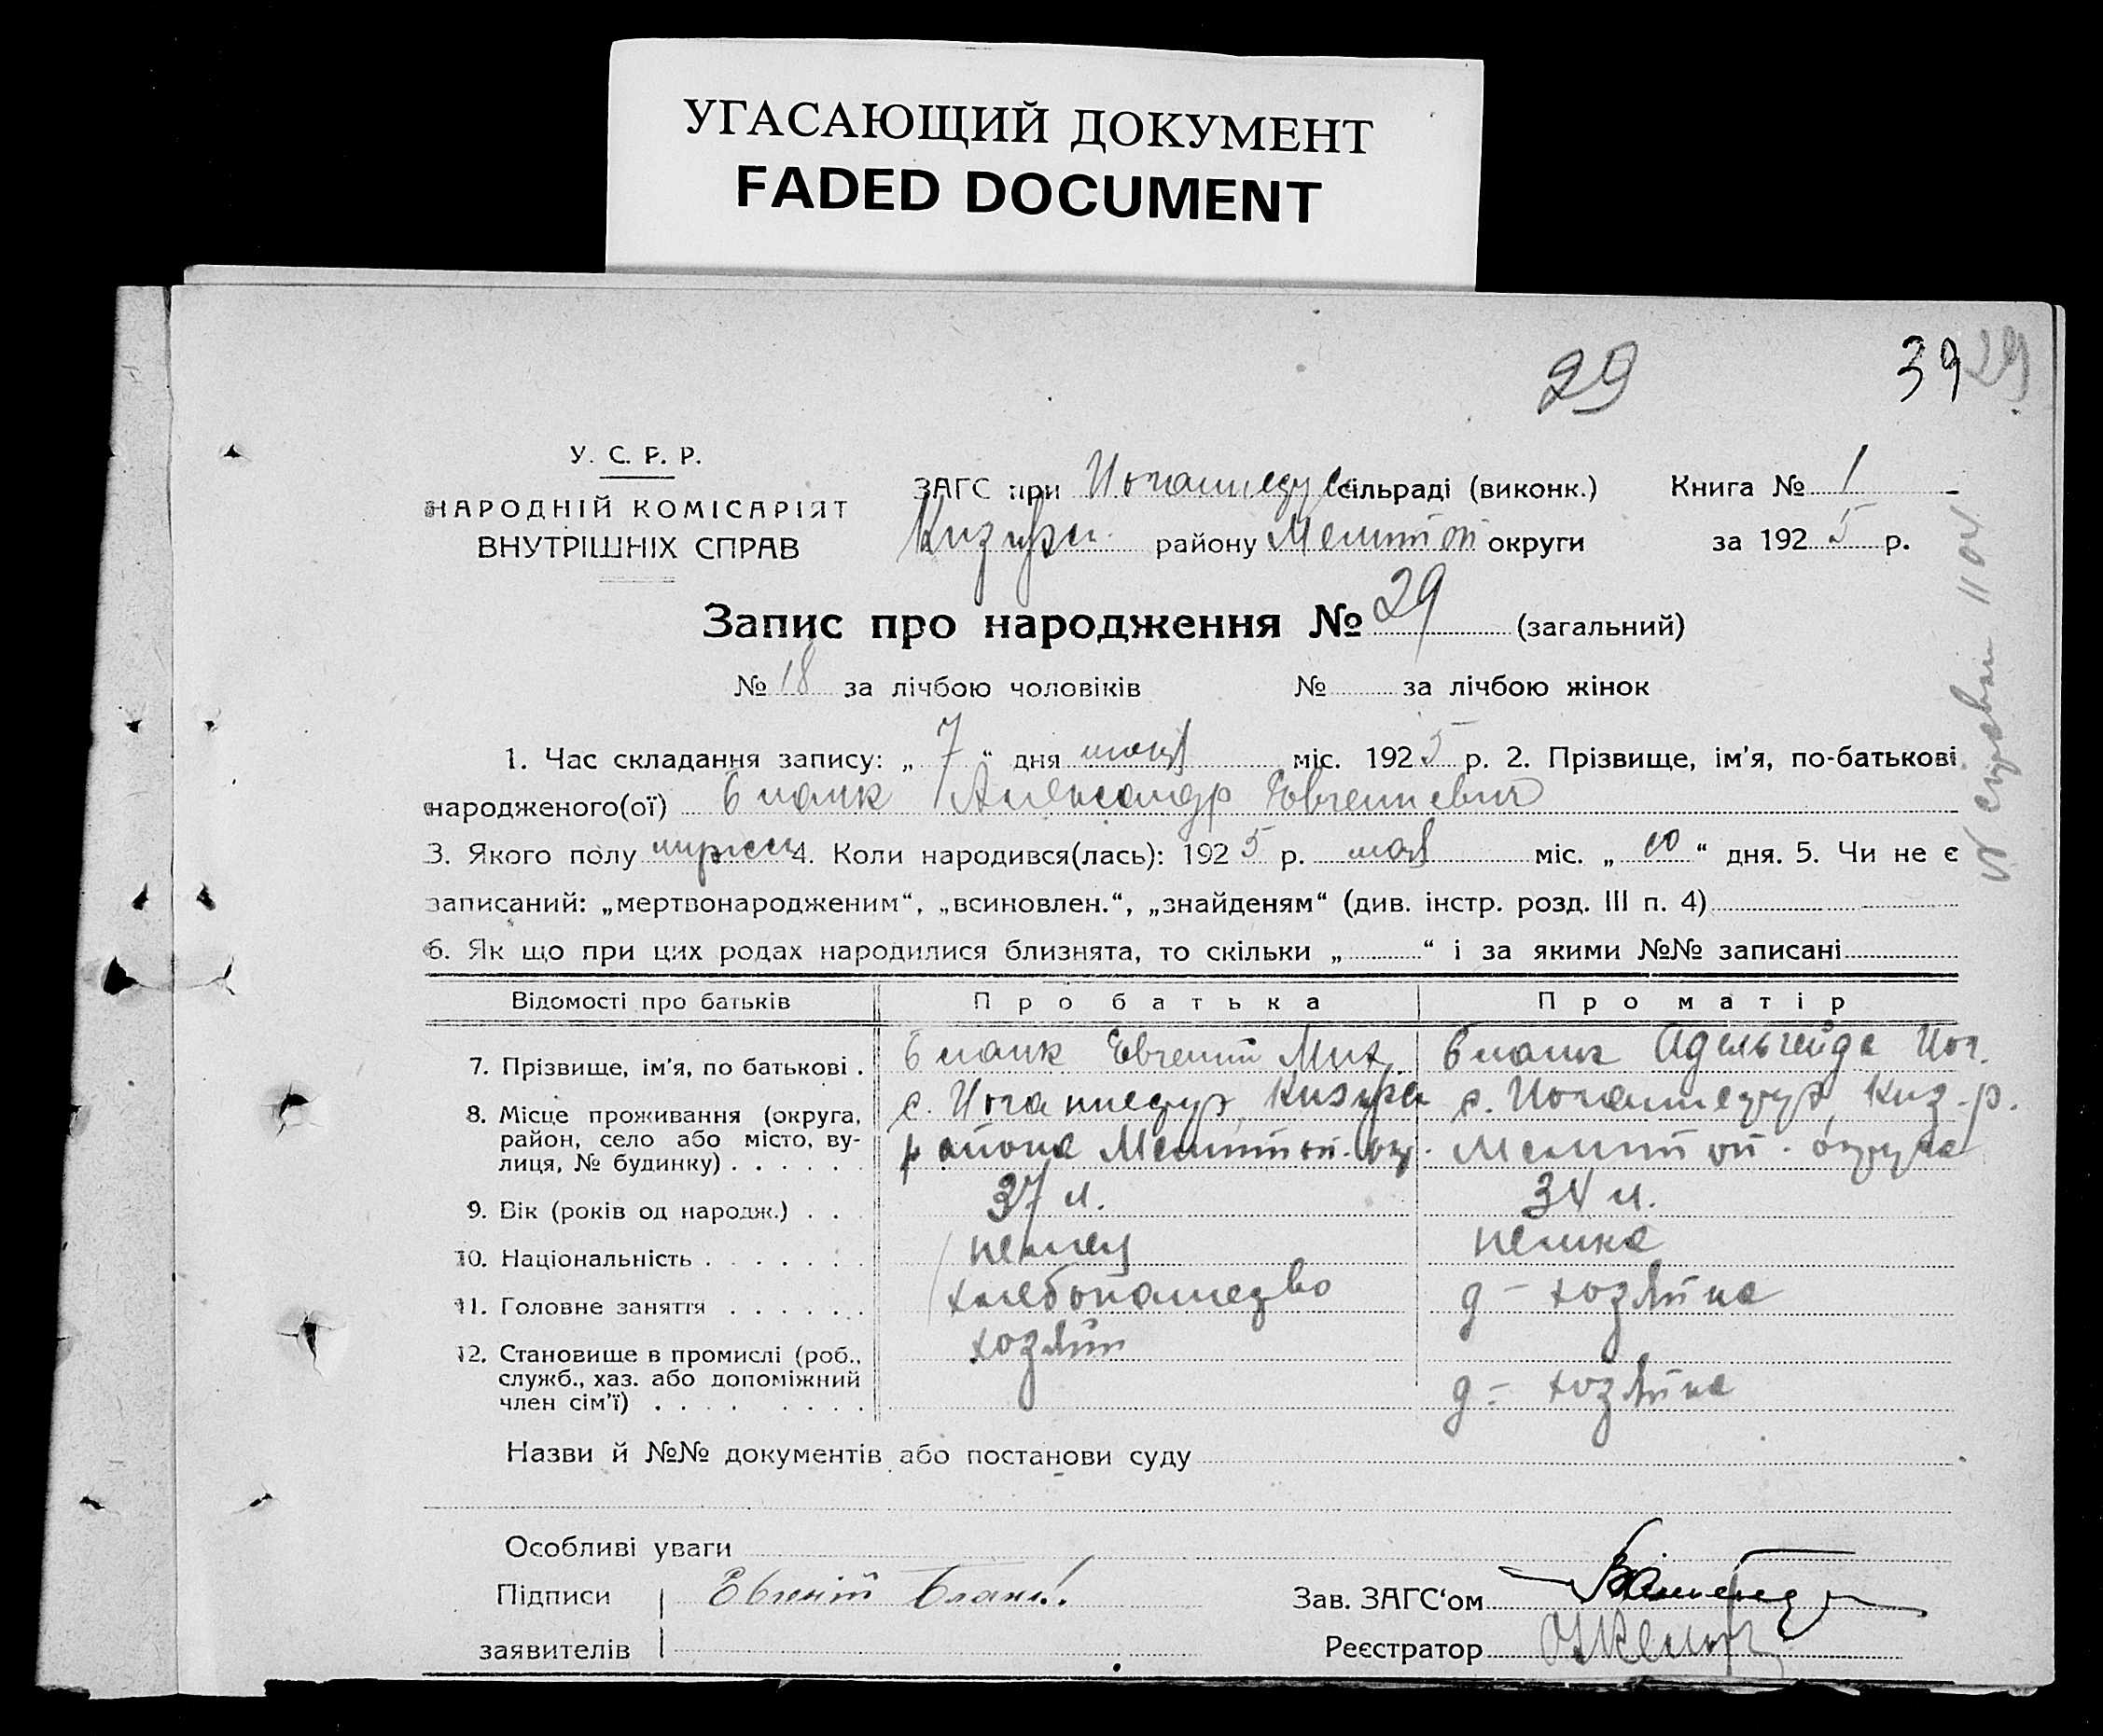 УГАСАЮЩИЙ ДОКУМЕНТ
FADED DOCUMENT
29
39 29
У. С. Р. Р.
НАРОДНІЙ КОМІСАРІЯТ
ВНУТРІШНІХ СПРАВ
ЗАГС при сільраді (виконк.) Книга № 1
району Мелитоп округи за 1925 р.
Запис про народження № 29 (загальний)
№ 18 за лічбою чоловіків № за лічбою жінок
1. Час складання запису: „ 7 “ дня мая міс. 1925 р. 2. Прізвище, ім'я, по-батькові
народженого(ої) Бланк Александр Евгениевич
3. Якого полу мужск 4. Коли народився(лась): 1925 р. мая міс. „ “ дня. 5. Чи не є
записаний: „мертвонародженим“, „всиновлен.“, „знайденям“ (див. інстр. розд. III п. 4)
6. Як що при цих родах народилися близнята, то скільки „ “ і за якими №№ записані
Відомості про батьків Про батька Про матір
7. Прізвище, ім'я, по батькові . Бланк Евгений Мих. Бланк Адельгейда Иог.
8. Місце проживання (округа,
район, село або місто, ву-
лиця, № будинку) . . . . . .
с. Иоганнесру, Кизиярск
района Мелитоп. окр.
с. Иоганнесру, Киз. р.
Мелитоп. округа
9. Вік (років од народж.) . . . 37 л. 34 л.
10. Національність . . . . . . . немец немка
11. Головне заняття . . . . . . хлебопашество д-хозяйка
12. Становище в промислі (роб.,
служб., хаз. або допоміжний
член сім'ї) . . . . . . . .
хозяин
д-хозяйка
Назви й №№ документів або постанови суду
Особливі уваги
Підписи
заявителів
Евгений Бланк.
Зав. ЗАГС'ом
Реєстратор